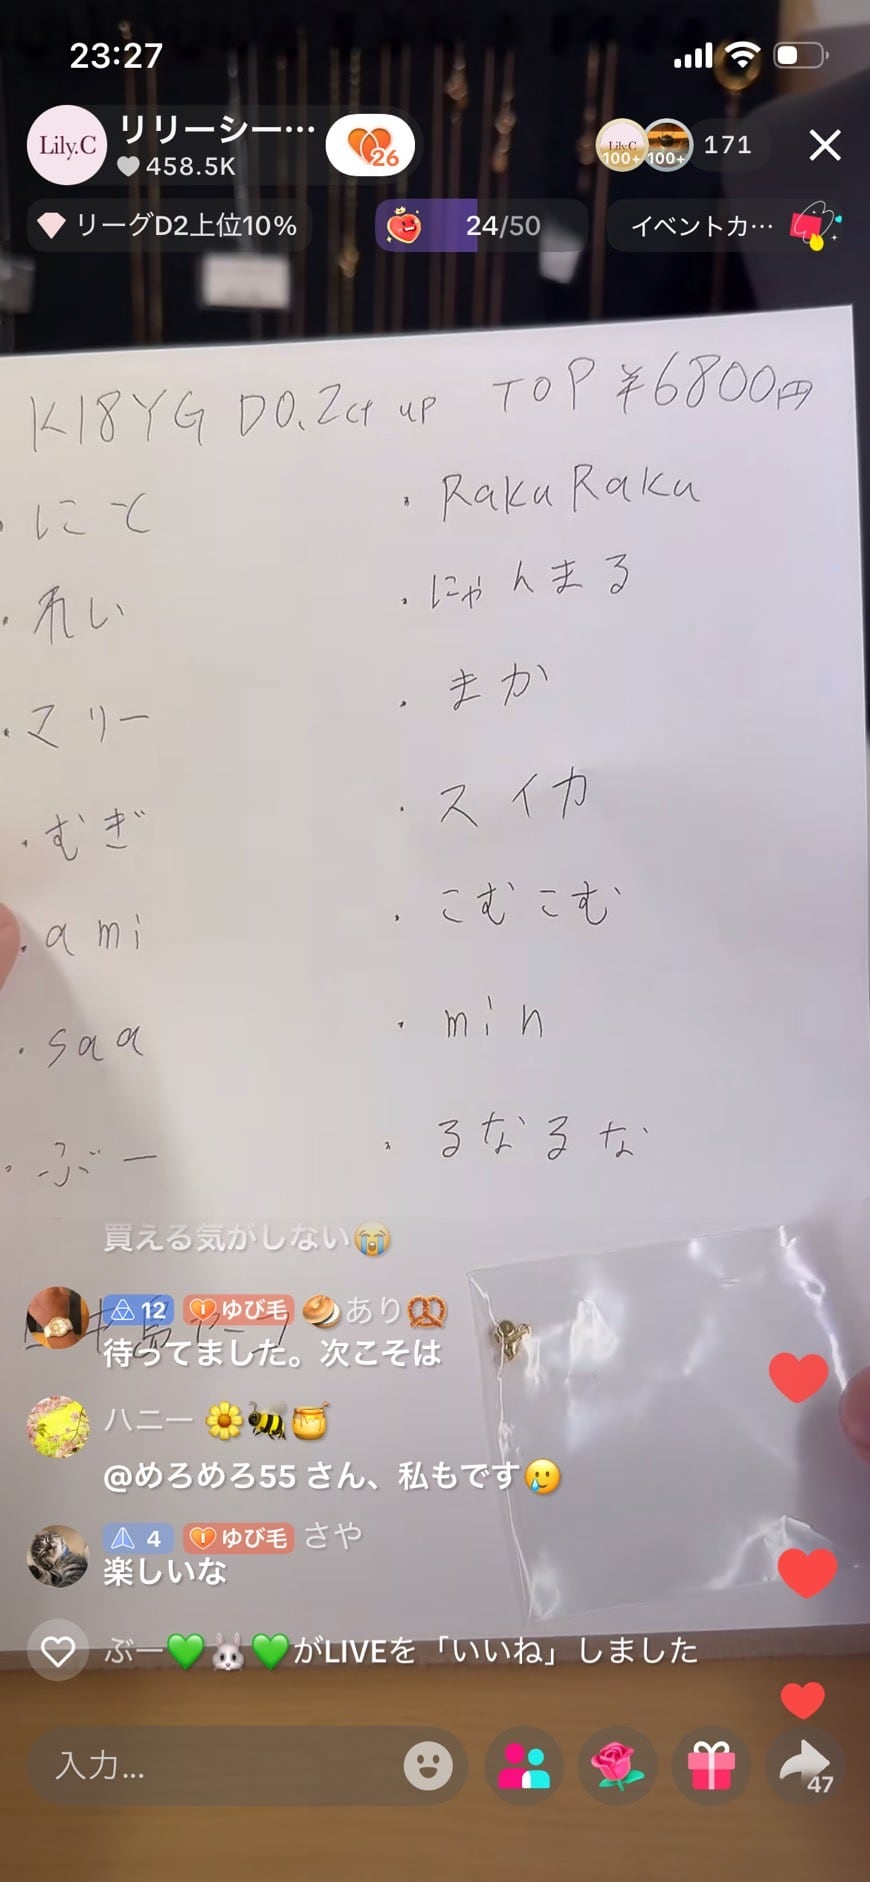 23:27
Lily.C
リリーシー…
458.5K
26
Lily.C
100+
100+
171
リーグD2上位10%
24/50
イベントカ…
K18YG D0.2ct up TOP ¥6800円
・にと
・RakuRaku
・れい
・にゃんまる
・マリー
・まか
・むぎ
・スイカ
・ami
・こむこむ
・saa
・min
・ぶー
・るなるな
買える気がしない😭
12 ゆび毛 🥞あり🥨
待ってました。次こそは
ハニー 🌼🐝🍯
@めろめろ55 さん、私もです🥲
4 ゆび毛 さや
楽しいな
ぶー💚🐰💚がLIVEを「いいね」しました
入力...
47